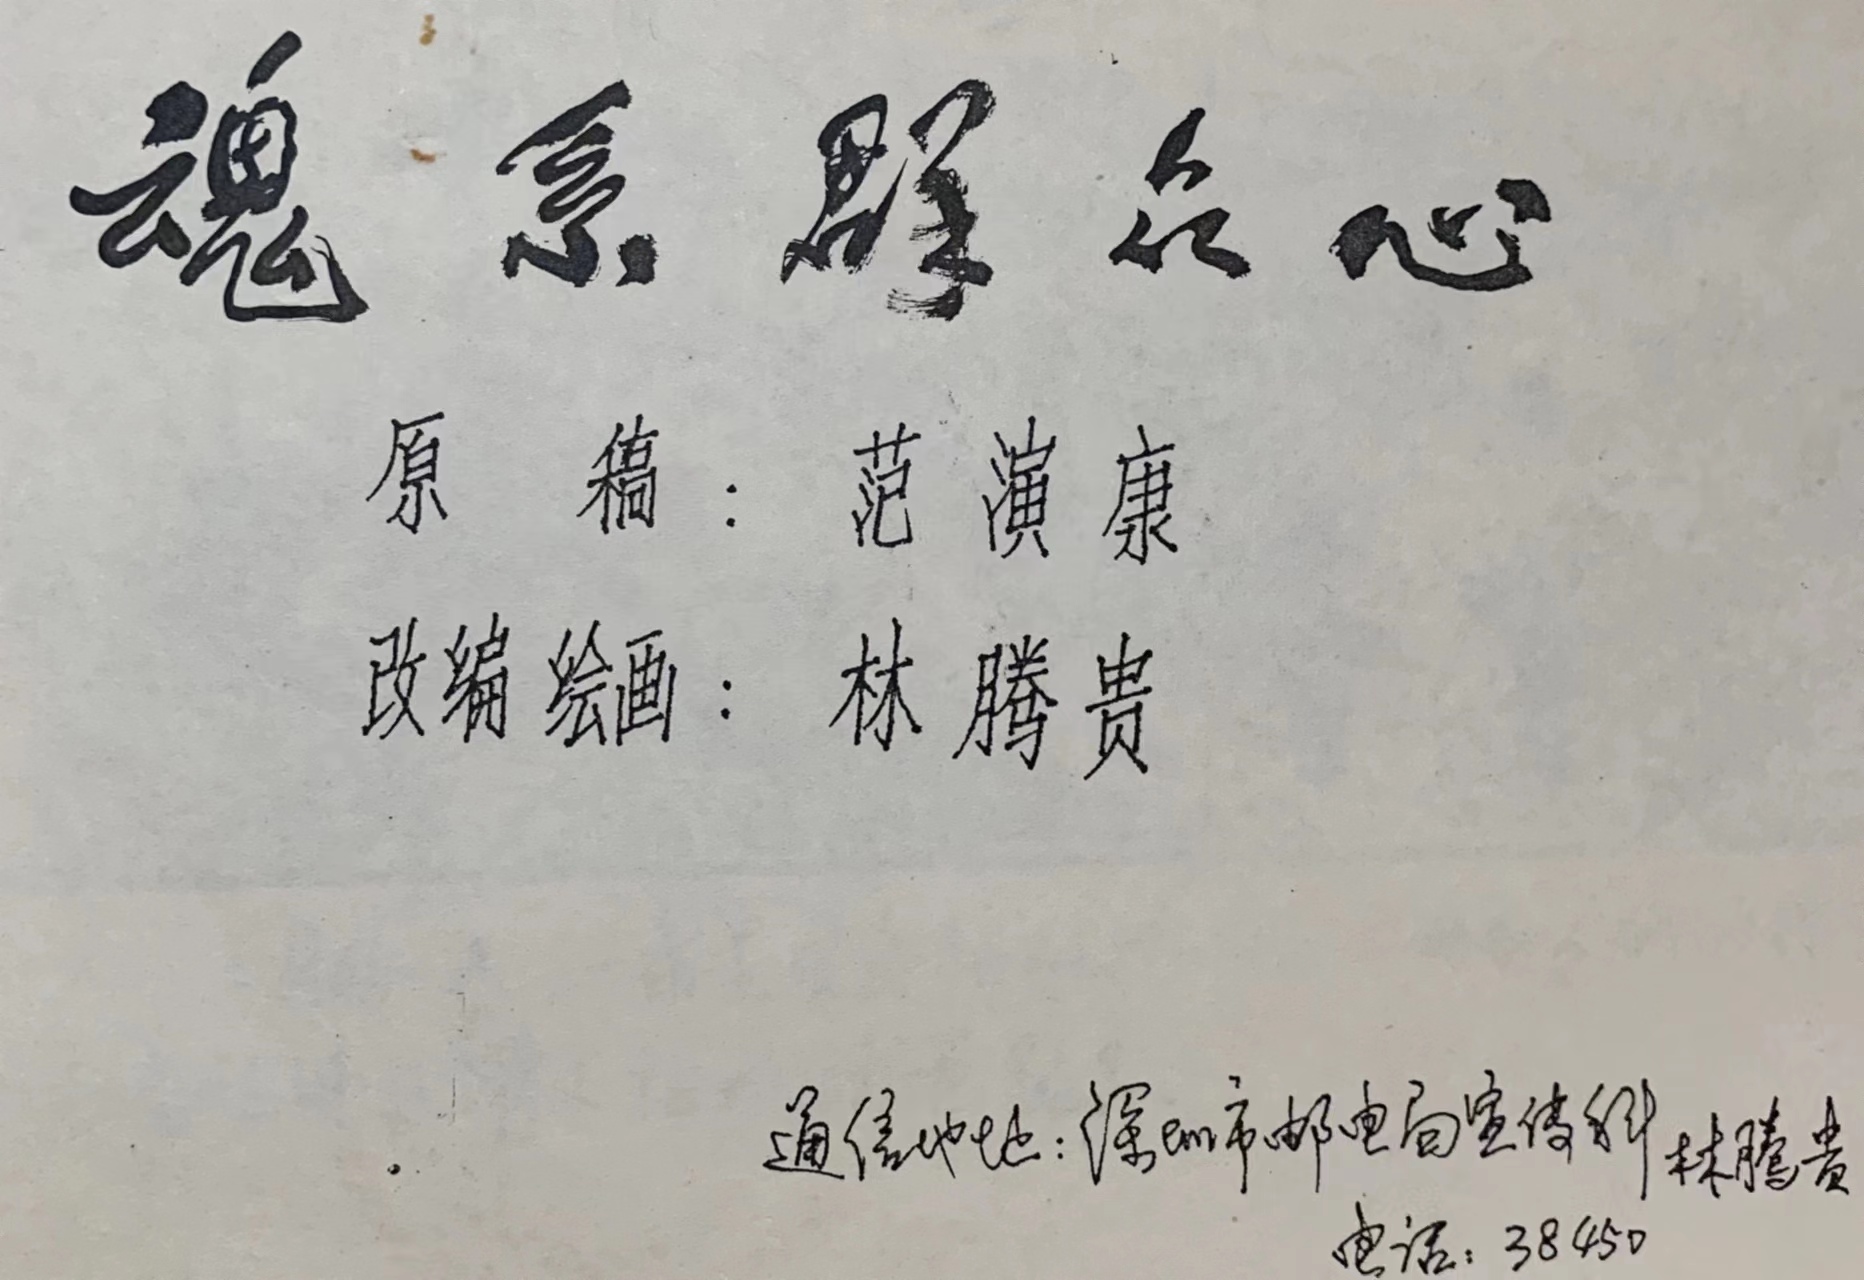 魂系群众心
原稿：范演康
改编绘画：林腾贵
通信地址：深圳市邮电局宣传科 林腾贵
电话：38450